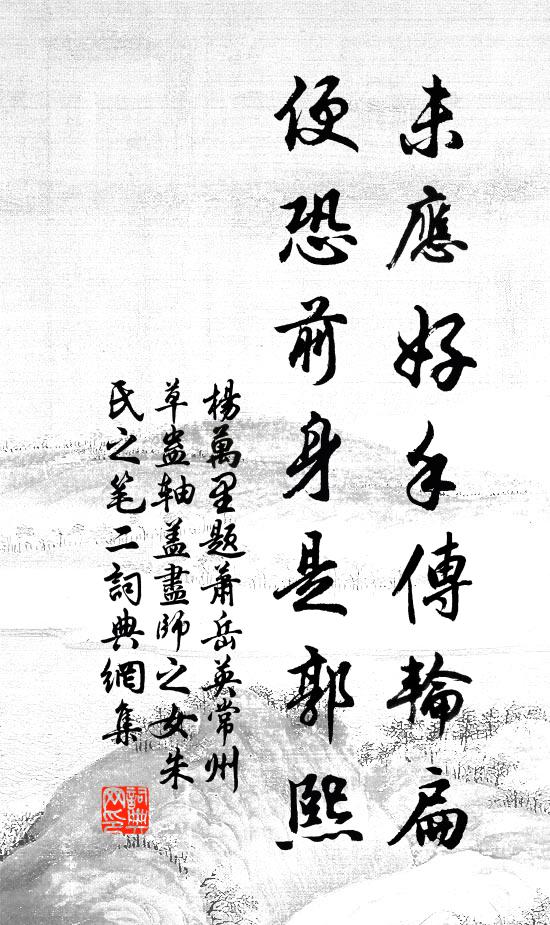 未應好手傳輪扁
便恐前身是郭熙
楊萬里題蕭岳英常州
草蟲轴盖畫師之女朱
氏之笔二詞典網集